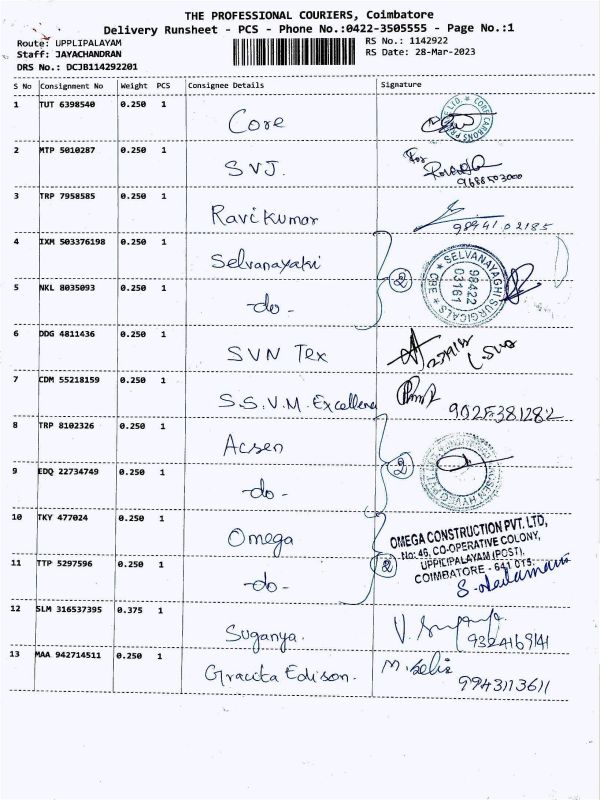 THE PROFESSIONAL COURIERS, Coimbatore
Delivery Runsheet - PCS - Phone No.:0422-3505555 - Page No.:1
Route: UPPLIPALAYAM
RS No.: 1142922
Staff: JAYACHANDRAN
RS Date: 28-Mar-2023
DRS No.: DCJB114292201
S No Consignment No Weight PCS Consignee Details Signature
1 TUT 6398540 0.250 1 Core
2 MTP 5010287 0.250 1 SVJ. For
9688503000
3 TRP 7958585 0.250 1 Ravikumar 98941 02185
4 IXM 503376198 0.250 1 Selvanayaki
5 NKL 8035093 0.250 1 -do- 2
SELVANAYAGHI SURGICALS * CBE *
98422
03161
6 DDG 4811436 0.250 1 SVN Tex
7 CDM 55218159 0.250 1 S.S.V.M. Excellence 9025381282
8 TRP 8102326 0.250 1 Acsen
9 EDQ 22734749 0.250 1 -do- 2
10 TKY 477024 0.250 1 Omega
OMEGA CONSTRUCTION PVT. LTD,
No: 46, CO-OPERATIVE COLONY,
UPPILIPALAYAM (POST),
COIMBATORE - 641 015.
11 TTP 5297596 0.250 1 -do- 2
12 SLM 316537395 0.375 1 Suganya. V. Suganya
9324169141
13 MAA 942714511 0.250 1 Gracita Edison. M. Selis
9943113611